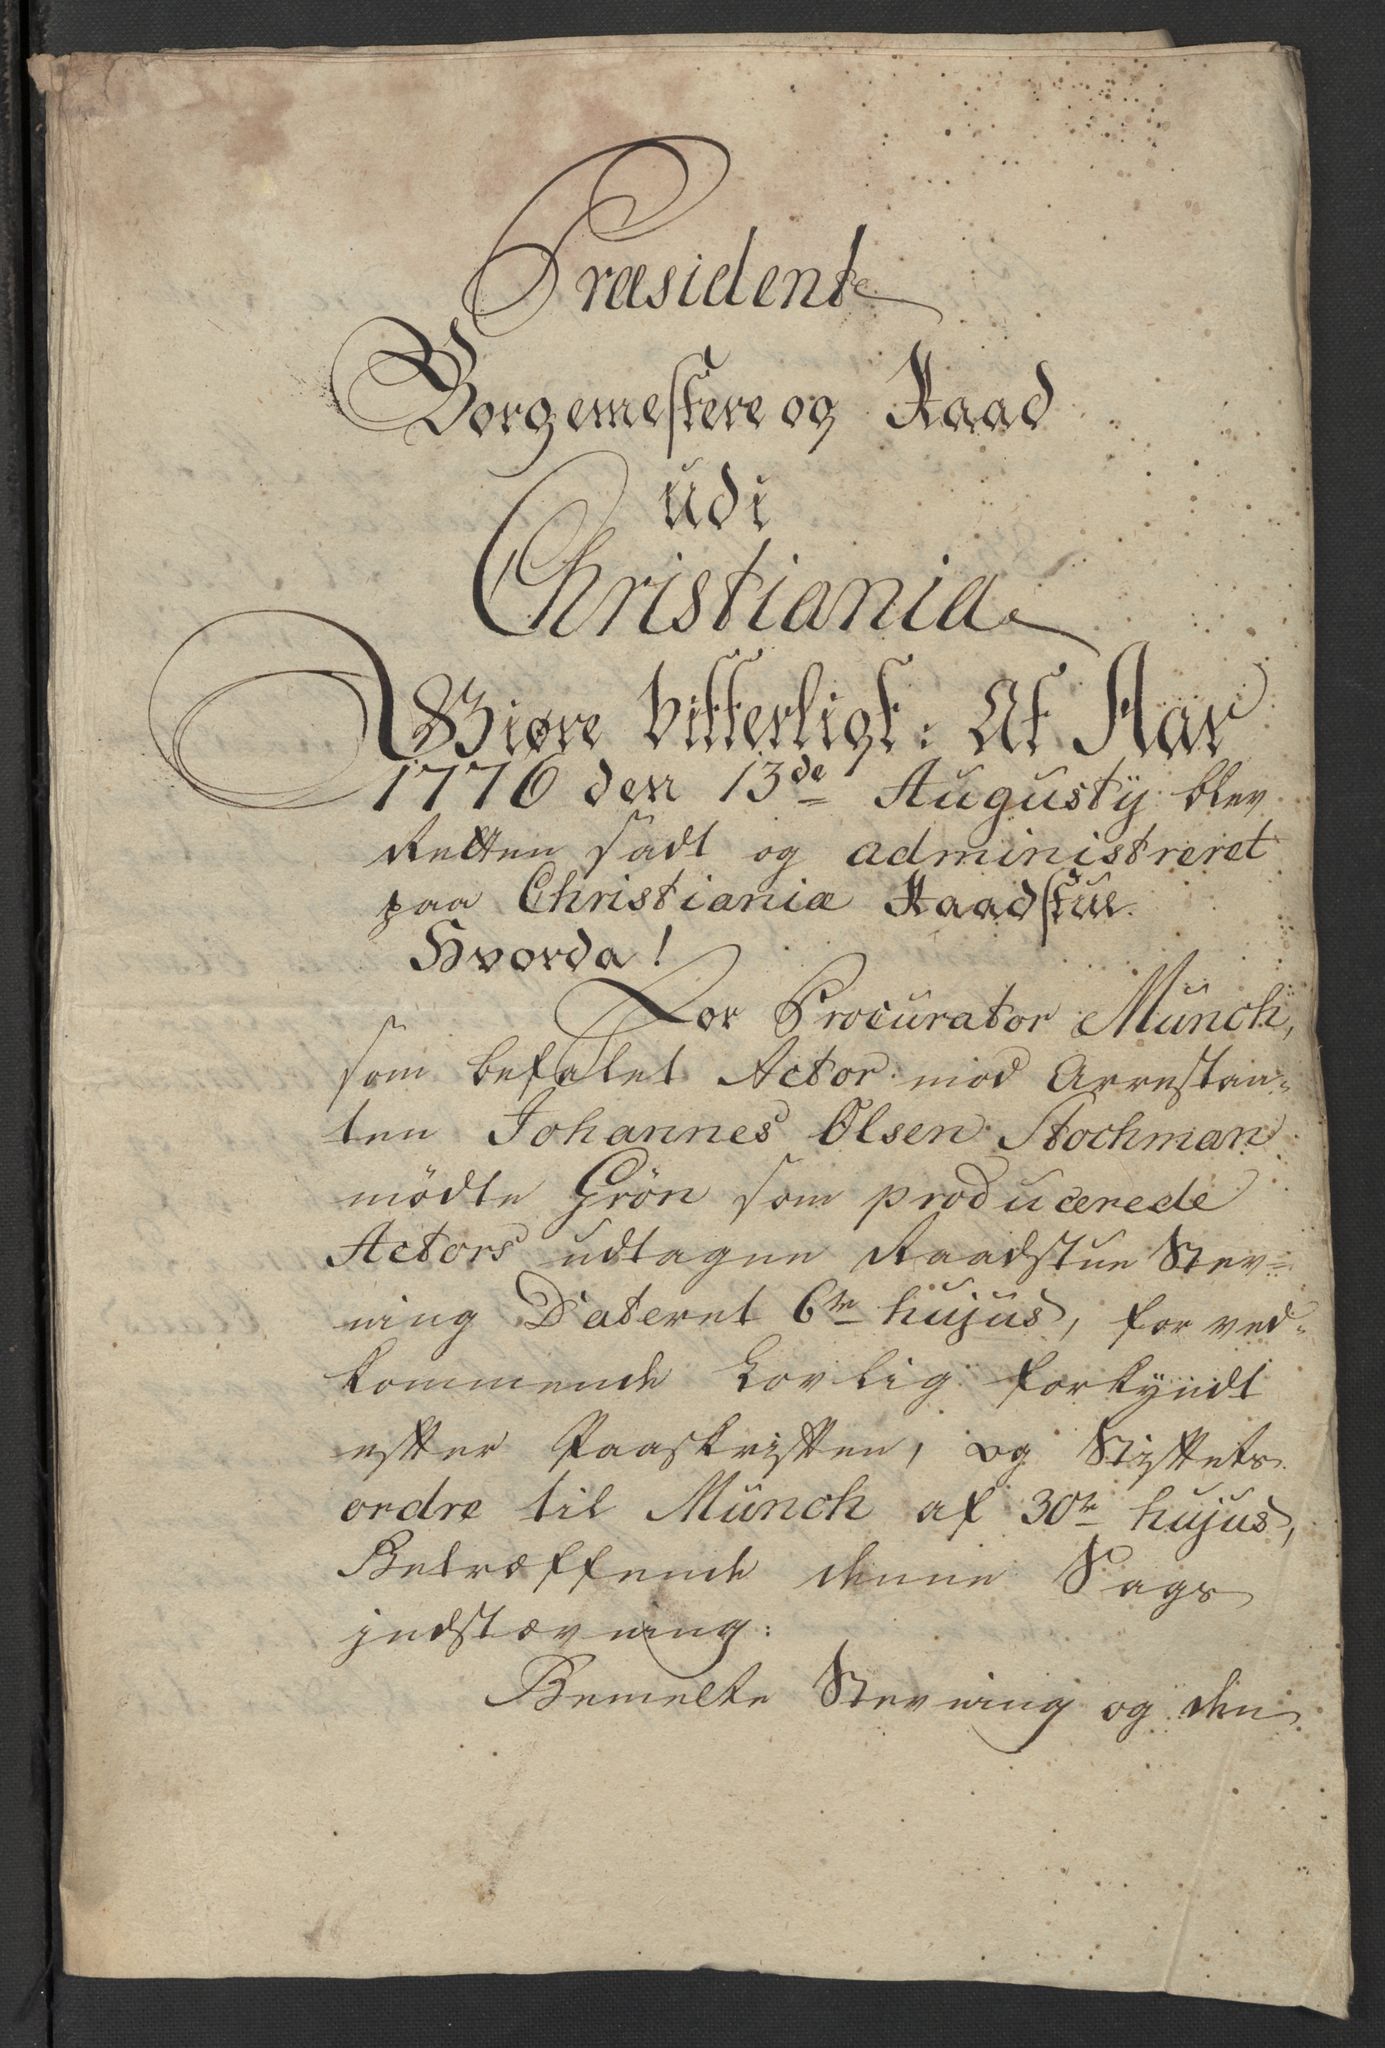 Præsident
Borgemestere og Raad
udi
Christiania
Giøre Vitterligt: At Aar
1776 den 13de Augustij blev
Retten sadt og administreret
paa Christianiæ Raadstue.
Hvorda!
For Procurator Münch,
som befalet Actor mod Arrestan-
ten Johannes Olsen Stochman
mödte Grön som producerede
Actors udtagne Raadstue Stev-
ning Dateret 6te hujus, for ved-
kommende Lovlig forkyndt
efter Paaskriften, og Stiftets
ordre til Münch af 30te hujus,
Betræffende denne Sags
jndstævning:
Bemelte Stevning og den